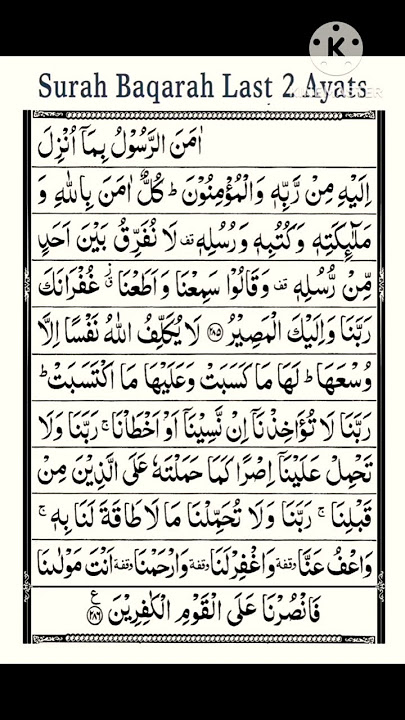 K
KINEMASTER
Surah Baqarah Last 2 Ayats
اٰمَنَ الرَّسُوْلُ بِمَاۤ اُنْزِلَ
اِلَيْهِ مِنْ رَّبِّهٖ وَالْمُؤْمِنُوْنَ ؕ كُلٌّ اٰمَنَ بِاللّٰهِ وَ
مَلٰٓئِكَتِهٖ وَكُتُبِهٖ وَرُسُلِهٖ قف لَا نُفَرِّقُ بَيْنَ اَحَدٍ
مِّنْ رُّسُلِهٖ قف وَقَالُوْا سَمِعْنَا وَاَطَعْنَا غُفْرَانَكَ
رَبَّنَا وَاِلَيْكَ الْمَصِيْرُ ﴿۲۸۵﴾ لَا يُكَلِّفُ اللّٰهُ نَفْسًا اِلَّا
وُسْعَهَا ؕ لَهَا مَا كَسَبَتْ وَعَلَيْهَا مَا اكْتَسَبَتْ ؕ
رَبَّنَا لَا تُؤَاخِذْنَاۤ اِنْ نَّسِيْنَاۤ اَوْ اَخْطَاْنَا ۚ رَبَّنَا وَلَا
تَحْمِلْ عَلَيْنَاۤ اِصْرًا كَمَا حَمَلْتَهٗ عَلَى الَّذِيْنَ مِنْ
قَبْلِنَا ۚ رَبَّنَا وَلَا تُحَمِّلْنَا مَا لَا طَاقَةَ لَنَا بِهٖ ۚ
وَاعْفُ عَنَّا وقفة وَاغْفِرْ لَنَا وقفة وَارْحَمْنَا وقفة اَنْتَ مَوْلٰىنَا
فَانْصُرْنَا عَلَى الْقَوْمِ الْكٰفِرِيْنَ ﴿۲۸۶﴾ ع